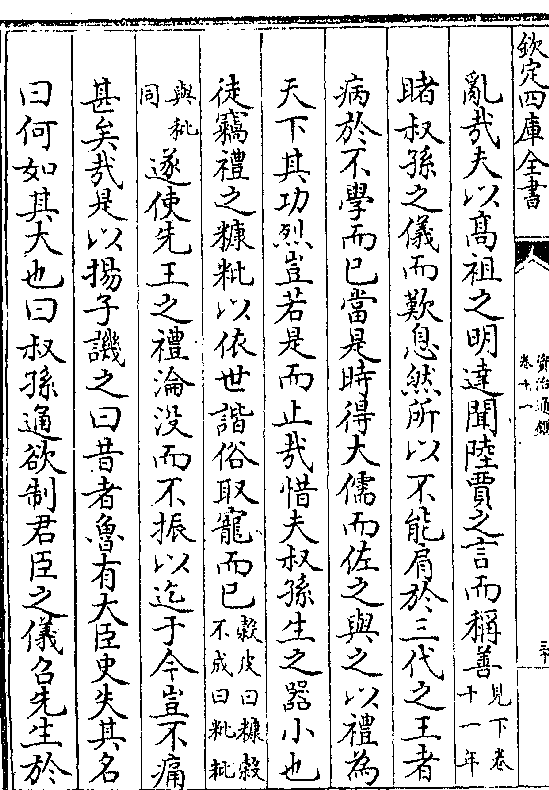 欽定四庫全書
資治通鑑
卷十一
三十
亂哉夫以高祖之明達聞陸賈之言而稱善見下卷十一年
睹叔孫之儀而歎息然所以不能肩於三代之王者
病於不學而已當是時得大儒而佐之與之以禮為
天下其功烈豈若是而止哉惜夫叔孫生之器小也
徒竊禮之糠粃以依世諧俗取寵而已穀皮曰糠穀不成曰粃粃
與秕同遂使先王之禮淪没而不振以迄于今豈不痛
甚矣哉是以揚子譏之曰昔者魯有大臣史失其名
曰何如其大也曰叔孫通欲制君臣之儀召先生於